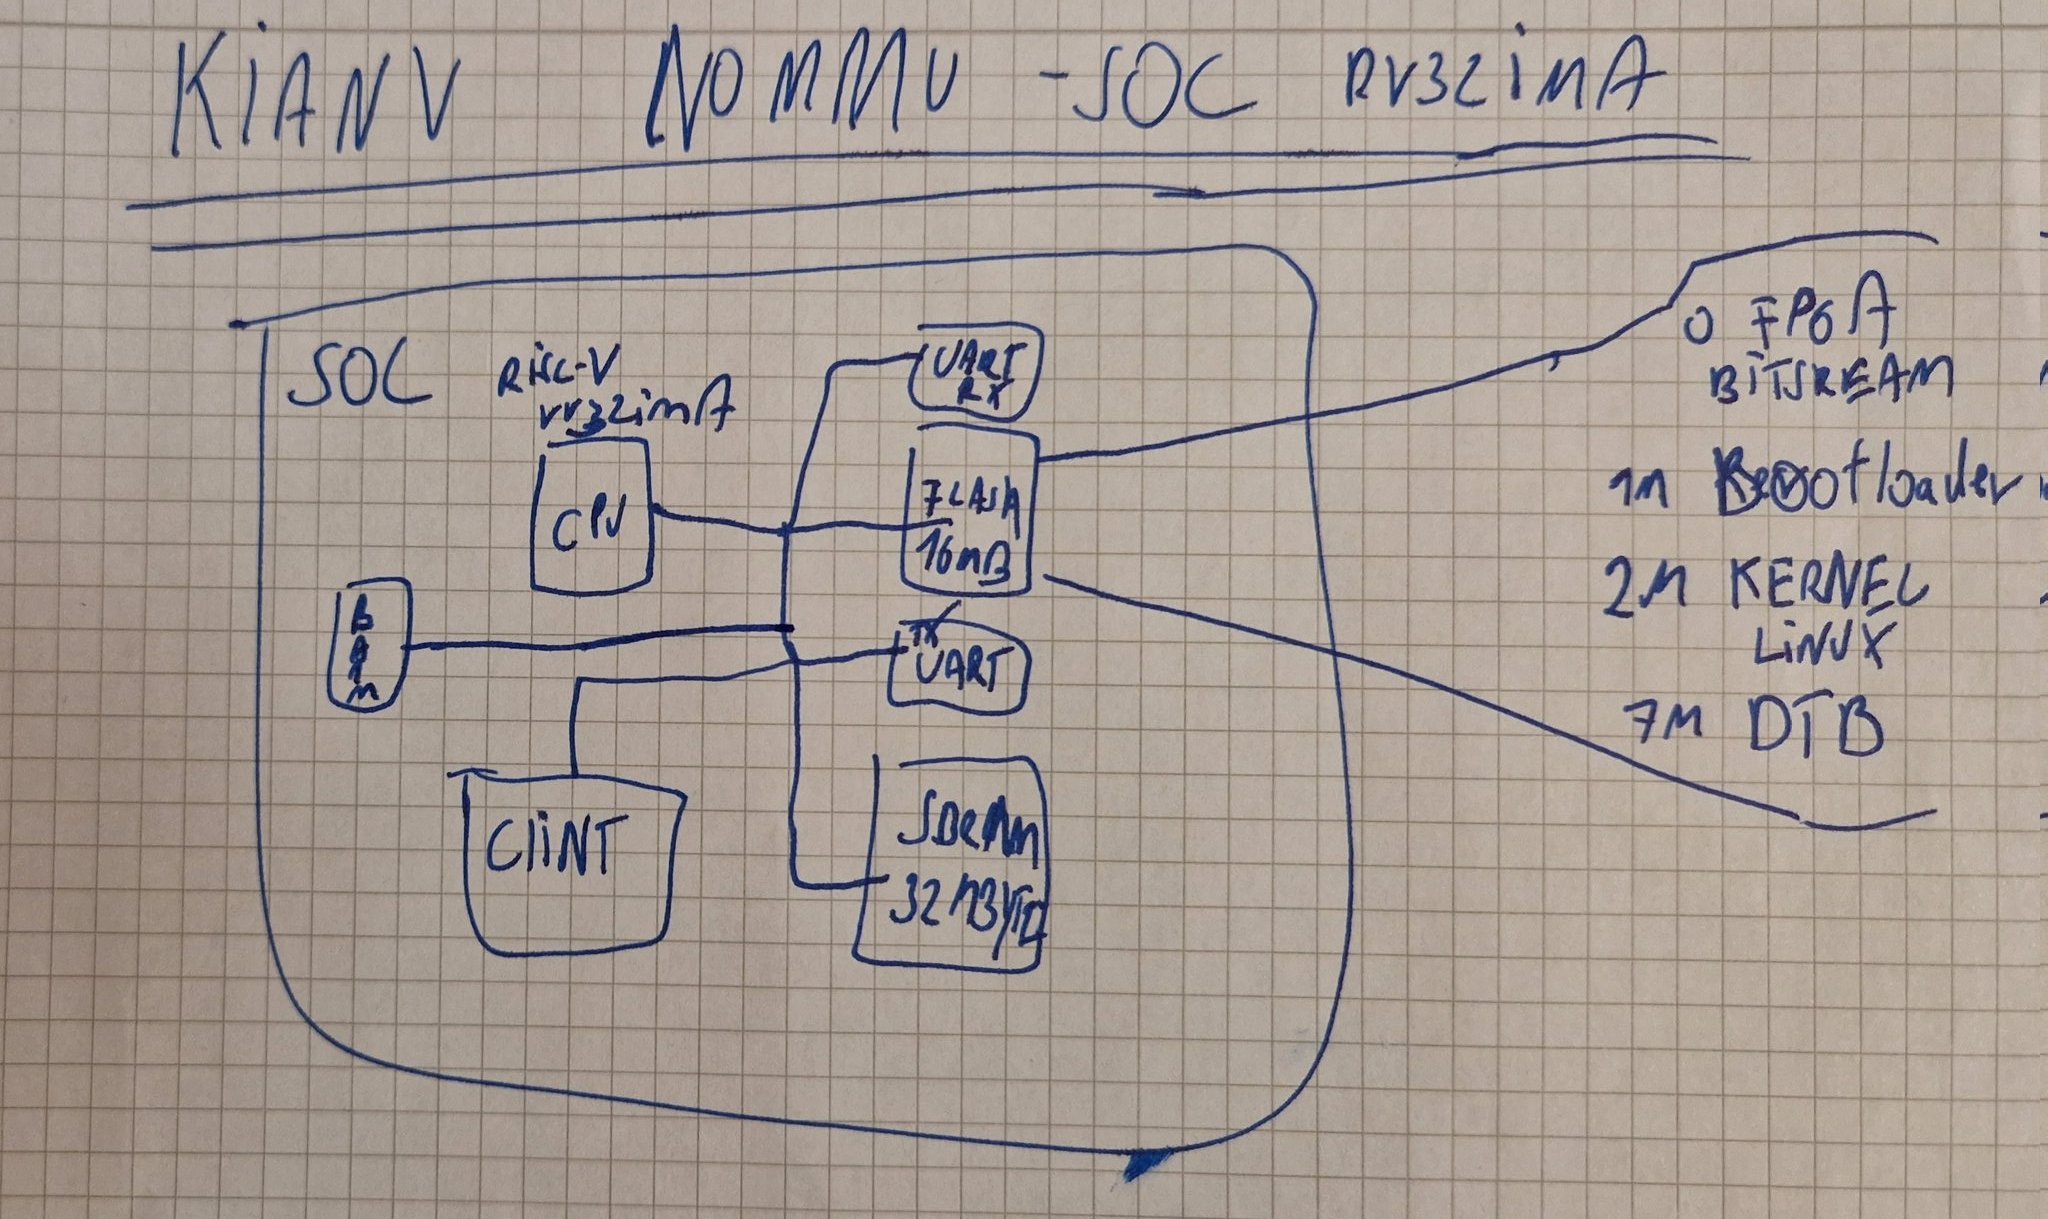 KiANV NOMMU -SOC RV32imA
SOC
RiSC-V
rv32imA
CPU
BRAM
CliNT
UART
RX
FLASH
16MB
TX
UART
SDRAM
32MBYTE
0 FPGA
BiTSREAM
1M Bootloader
2M KERNEL
LiNUX
7M DTB